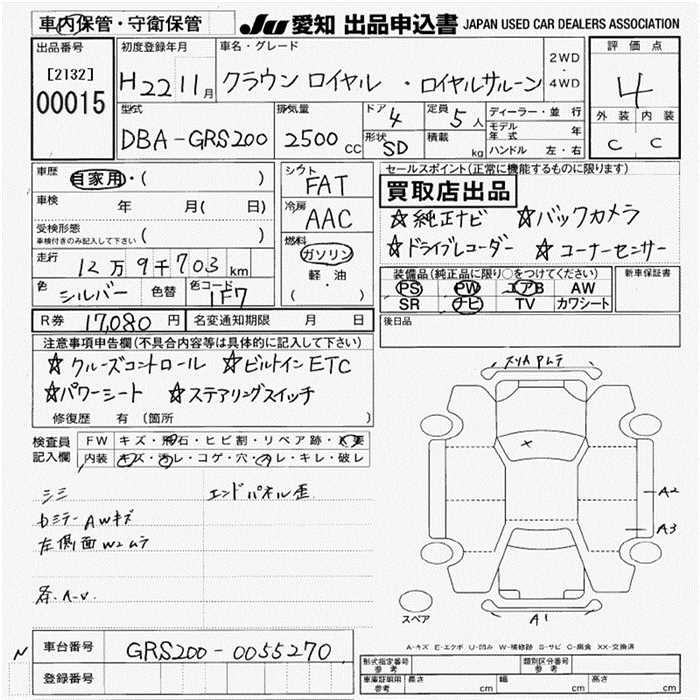 車内保管・守衛保管
JU 愛知 出品申込書 JAPAN USED CAR DEALERS ASSOCIATION
出品番号
[2132]
00015
初度登録年月
H22 11月
車名・グレード
クラウン ロイヤル ・ロイヤルサルーン
2WD
・
4WD
評価点
4
外装 内装
C C
型式
DBA-GRS200
排気量
2500 CC
ドア 4
形状 SD
定員 5人
積載 kg
ディーラー・並行
モデル年式 年
ハンドル 左・右
車歴
自家用・( )
車検 年 月( 日)
受検形態
車検付きのみ記入して下さい ( )
走行
12万9千703km
色 シルバー 色替 色コード 1F7
シフト
FAT
冷房
AAC
燃料
ガソリン
軽油
( )
セールスポイント(正常に機能するものに限ります)
買取店出品
☆純正ナビ ☆バックカメラ
☆ドライブレコーダー ☆コーナーセンサー
装備品(純正品に限り○をつけてください)
PS PW エアB AW
SR ナビ TV カワシート
新車保証書
後日品
R券 17,080円 名変通知期限 月 日
注意事項申告欄(不具合内容等は具体的に記入して下さい)
☆クルーズコントロール ☆ビルトインETC
☆パワーシート ☆ステアリングスイッチ
修復歴 有(箇所 )
検査員記入欄
FW キズ・飛石・ヒビ割・リペア跡・X要
内装 キズ・汚レ・コゲ・穴・スレ・キレ・破レ
エンドパネル歪
AWキズ
左側面W2ムラ
各.A-V.
スリA Pムラ
A2
A3
A1
スペア
A-キズ E-エクボ U-凹み W-補修跡 S-サビ C-腐食 XX-交換済
N
車台番号 GRS200-0055270
登録番号
形式指定番号 参考
類別区分番号 参考
車庫証明用 参考 長さ cm 幅 cm 高さ cm